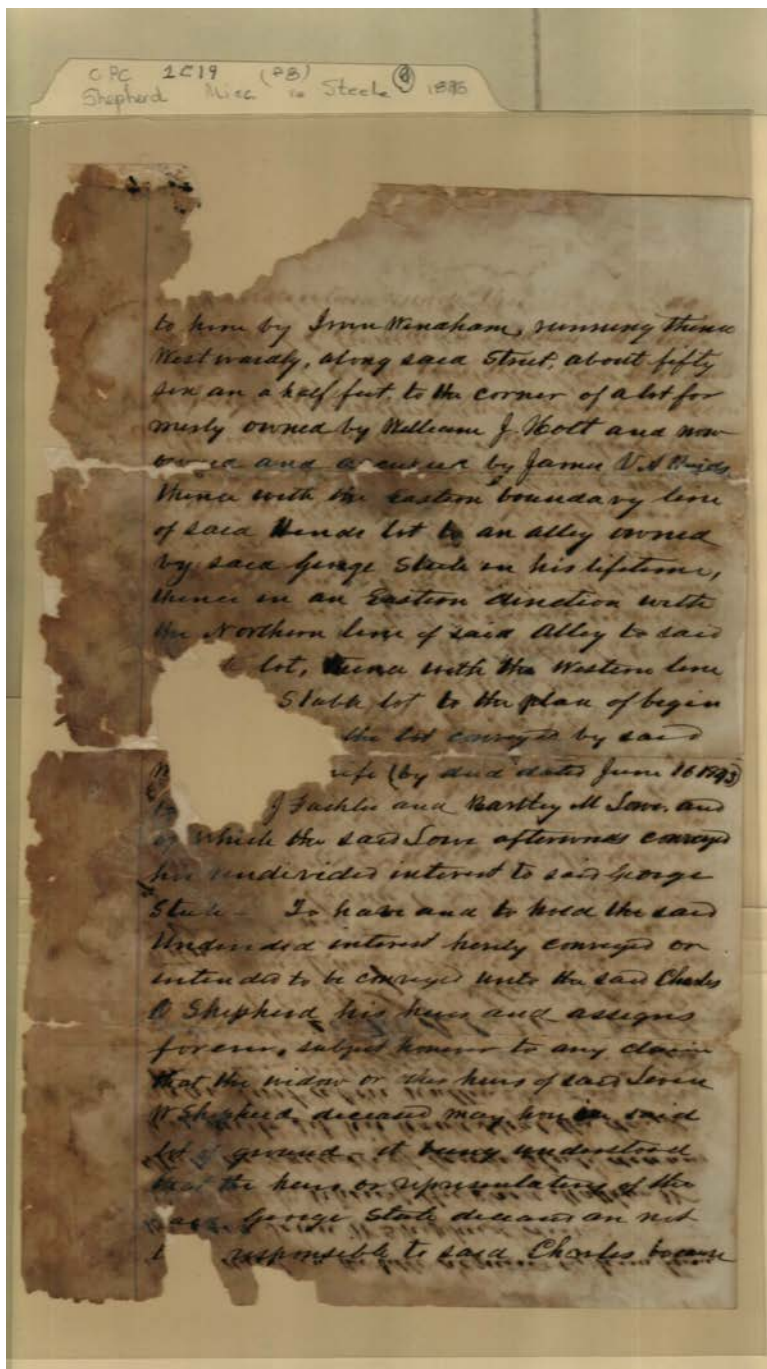 CPC 1C19 (PB)
Shepherd Misc to Steele 1885
to him by Windham, running thence
Westwardly, along said Street, about fifty
six an a half feet, to the corner of a lot for
merly owned by William J. Holt and now
owned and by James V. A Hinds,
thence with the eastern boundary line
of said Hinds lot to an alley owned
by said George Steele in his lifetime,
thence in an Eastern direction with
the Northern line of said Alley to said
lot, thence with the Western line
Stable lot to the place of begin
the lot conveyed by said
wife (by deed dated June 16
J and Bartley M Lowe, and
of which the said Lowe afterwards conveyed
his undivided interest to said George
Steele – To have and to hold the said
Undivided interest hereby conveyed or
intended to be conveyed unto the said Charles
Shepherd, his heirs and assigns
forever, subject however to any claim
that the widow or the heirs of said
W Shepherd, deceased may have in said
lot of ground, it being understood
that the heirs or representatives of the
said George Steele deceased are not
responsible to said Charles because